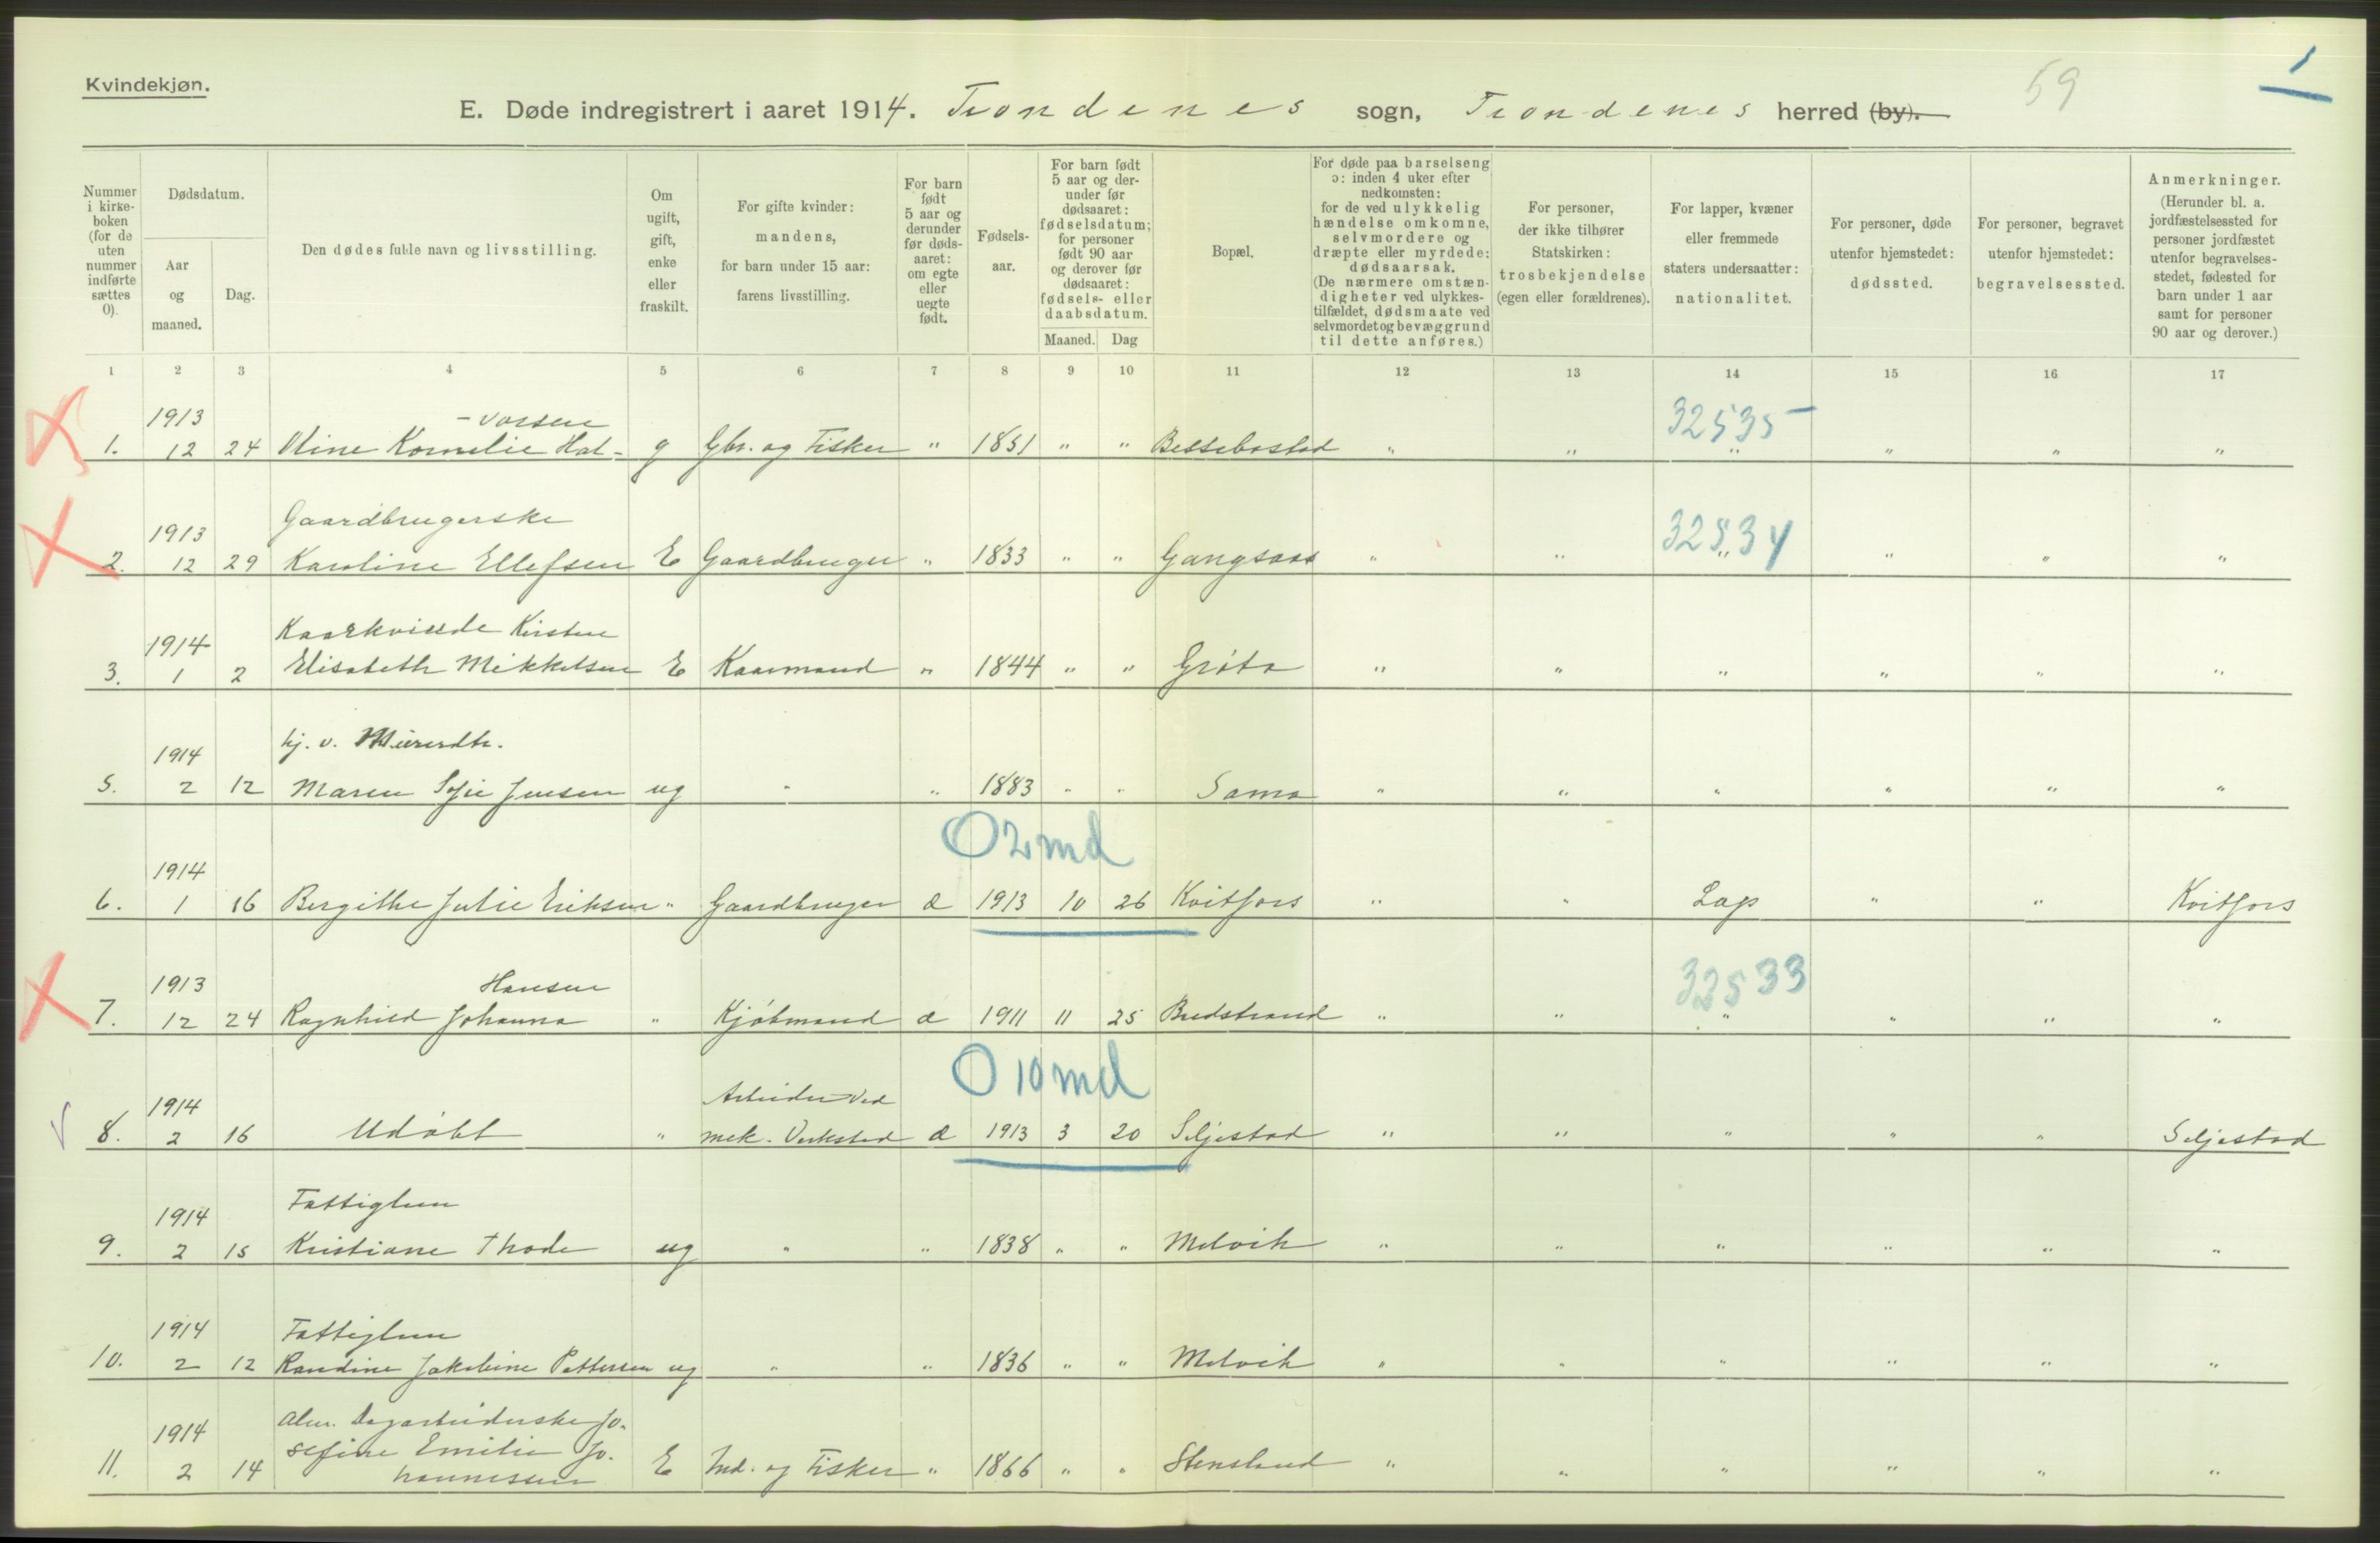 Kvindekjøn.
59
1
E. Døde indregistrert i aaret 1914. Trondenes sogn, Trondenes herred (by).
Nummer i kirkeboken (for de uten nummer indførte sættes 0).
Dødsdatum.
Aar og maaned.
Dag.
Den dødes fulde navn og livsstilling.
Om ugift, gift, enke eller fraskilt.
For gifte kvinder: mandens, for barn under 15 aar: farens livsstilling.
For barn født 5 aar og derunder før dødsaaret: om egte eller uegte født.
Fødselsaar.
For barn født 5 aar og derunder før dødsaaret: fødselsdatum; for personer født 90 aar og derover før dødsaaret: fødsels- eller daabsdatum.
Maaned. Dag
Bopæl.
For døde paa barselseng ɔ: inden 4 uker efter nedkomsten: for de ved ulykkelig hændelse omkomne, selvmordere og dræpte eller myrdede: dødsaarsak. (De nærmere omstændigheter ved ulykkestilfældet, dødsmaate ved selvmordet og bevæggrund til dette anføres.)
For personer, der ikke tilhører Statskirken: trosbekjendelse (egen eller forældrenes).
For lapper, kvæner eller fremmede staters undersaatter: nationalitet.
For personer, døde utenfor hjemstedet: dødssted.
For personer, begravet utenfor hjemstedet: begravelsessted.
Anmerkninger. (Herunder bl. a. jordfæstelsessted for personer jordfæstet utenfor begravelsesstedet, fødested for barn under 1 aar samt for personer 90 aar og derover.)
1 2 3 4 5 6 7 8 9 10 11 12 13 14 15 16 17
1913 -vorsen 32535
1. 12 24 Oline Kornelie Hal- g Gbr. og Fisker " 1851 " " Bessebostad " " " " " "
1913 Gaardbrugerske 32534
2. 12 29 Karoline Ellefsen E Gaardbruger " 1833 " " Gangsaas " " " " " "
1914 Kaarkvinde Kirsten
3. 1 2 Elisabeth Mikkelsen E Kaarmand " 1844 " " Grøta " " " " " "
1914 hj. v.
5. 2 12 Maren Sofie Jensen ug " " 1883 " " Sama " " " " " "
O 2 md
1914
6. 1 16 Bergithe Julie Eriksen " Gaardbruger Æ 1913 10 26 Kvitfors " " Lap " " Kvitfors
1913 Hansen 32533
7. 12 24 Ragnhild Johanna " Kjøbmand Æ 1911 11 25 Bredstrand " " " " " "
O 10 md
1914 Arbeider ved
8. 2 16 Udøbt " mek. Verksted Æ 1913 3 20 Seljestad " " " " " Seljestad
1914 Fattiglem
9. 2 15 Kristiane Thode ug " " 1838 " " Melvik " " " " " "
1914 Fattiglem
10. 2 12 Randine Jakobine Pettersen ug " " 1836 " " Melvik " " " " " "
1914 alm. Dagarbeiderske Jo-
sefine Emilie Jo-
11. 2 14 hannessen E Ind. og Fisker " 1866 " " Stensland " " " " " "